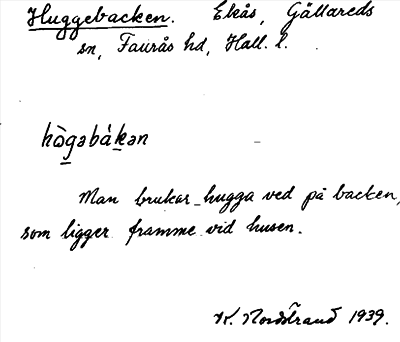 Huggebacken. Ekås, Gällareds
sn, Faurås hd, Hall. l.
hò̱gəbákən
Man brukar hugga ved på backen,
som ligger framme vid husen.
K. Nordstrand 1939.